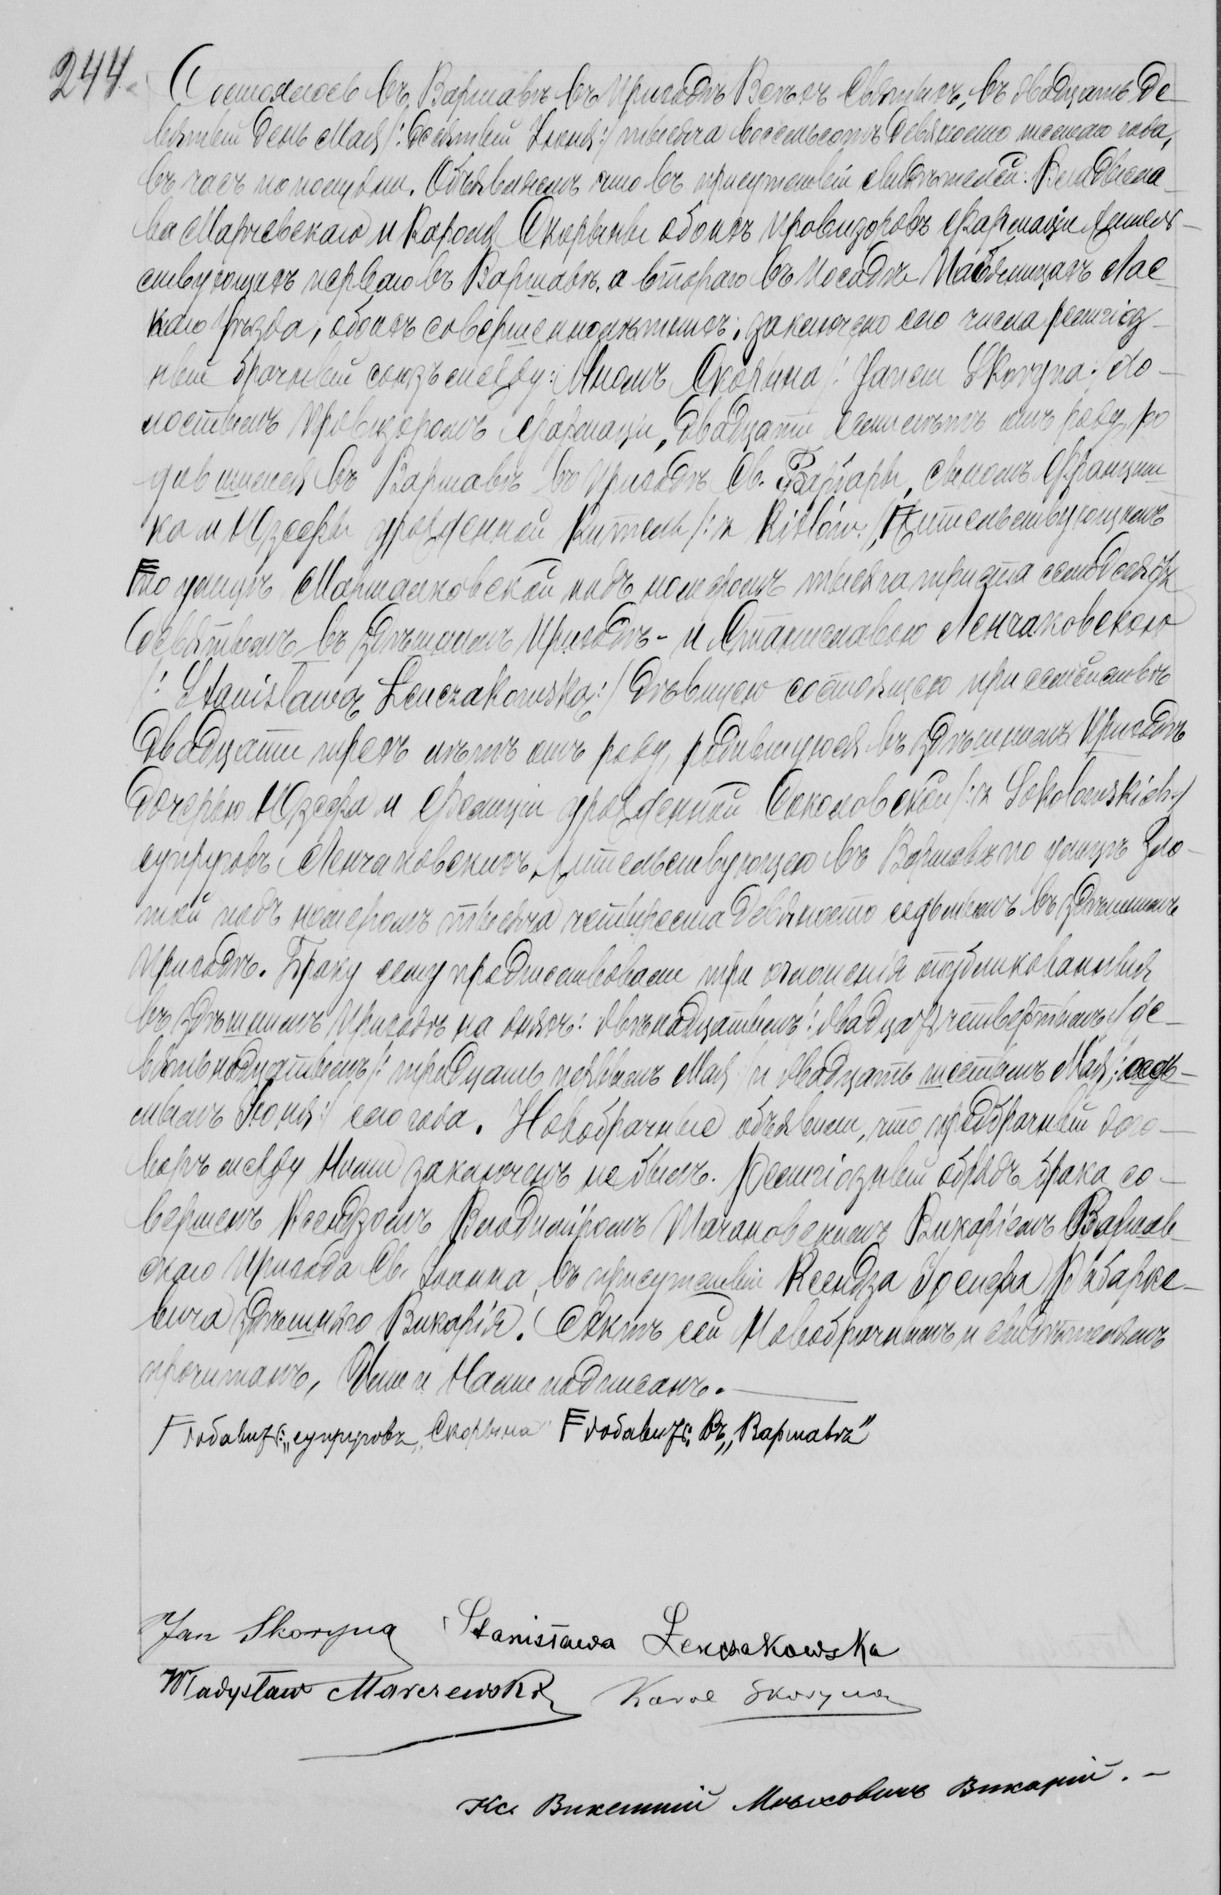 244.
Состоялось въ Варшавѣ въ Приходѣ Всѣхъ Святыхъ, въ двадцать де-
вятый день Мая /: десятый Іюня :/ тысяча восемьсотъ девяносто шестаго года,
въ часъ пополудни. Объявляемъ что въ присутствіи свидѣтелей: Владисла-
ва Марчевскаго и Кароля Скорыны обоихъ провизоровъ фармаціи жительс-
твующихъ перваго въ Варшавѣ, а втораго въ посадѣ Пабяницахъ Лас-
каго уѣзда, обоихъ совершеннолѣтнихъ; заключено сего числа религіоз-
ный брачный союзъ между: Яномъ Скорына /: Janem Skoryna :/ хо-
лостымъ провизоромъ фармаціи, двадцати семи лѣтъ отъ роду, ро
дившимся въ Варшавѣ въ приходѣ Св. Барбары, сыномъ Франциш
ка и Юзефы урожденной Китель /: z Kitlów :/, жительствующимъ
по улицѣ Маршалковской подъ номеромъ тысяча триста семьдесятъ
девятымъ въ здѣшнемъ Приходѣ - и Станиславою Ленчаковскою
/: Stanisławą Lenczakowską :/ дѣвицею состоящею при семействѣ
двадцати трехъ лѣтъ отъ роду, родившуюся въ здѣшнемъ Приходѣ
дочерью Юзефа и Фелиціи урожденной Соколовской /: z Sokolowskich :/
супруговъ Ленчаковскихъ, жительствующею въ Варшавѣ по улицѣ Зло-
той подъ номеромъ тысяча четыреста девяносто седьмымъ въ здѣшнемъ
Приходѣ. Браку сему предшествовали три оглашенія опубликованныя
въ здѣшнемъ Приходѣ на дняхъ: двѣнадцатымъ /: двадцать четвертымъ :/ де-
вятнадцатымъ /: тридцать первымъ Мая :/ и двадцать шестымъ Мая /: седь-
мымъ Іюня :/ сего года. Новобрачные объявили, что предбрачный дого-
воръ между ними заключенъ не былъ. Религіозный обрядъ брака со-
вершенъ Ксендзомъ Владиміромъ Тачановскимъ Викаріемъ Варшав-
скаго Прихода Св. Іоанна, въ присутствіи Ксендза Іосифа Рыбарке-
вича здѣшняго Викарія. Актъ сей Новобрачнымъ и свидѣтелямъ
прочитанъ, Ими и Нами подписанъ.
добавить: „супруговъ Скорына" добавить: Въ „Варшавѣ"
Jan Skoryna Stanisława Lenczakowska
Władysław Marczewski Karol Skoryna
Кс. Викентій Малховичъ Викарій. -